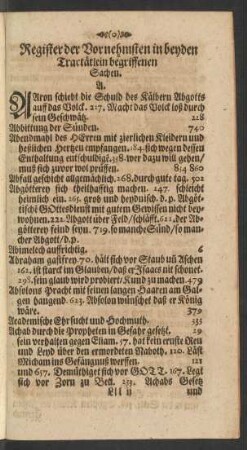 (o)
Register der Vornehmsten in beyden
Tractätlein begriffenen
Sachen.
A.
AAron schiebt die Schuld des Kälbern Abgotts
auff das Volck. 217. Macht das Volck loß durch
sein Geschwätz. 228
Abbittung der Sünden. 740
Abendmahl des HErren mit zierlichen Kleidern und
heslichen Hertzen empfangen. 184. sich wegen dessen
Enthaltung entschuldigt. 358. wer dazu will gehen/
muß sich zuvor wol prüffen. 814 860
Abfall geschicht allgemächlich. 268. durch gute tag. 502
Abgötterey sich theilhafftig machen. 247. schleicht
heimlich ein. 265. grob und heydnisch. d. p. Abgöt-
tischē Gottesdienst mit gutem Gewissen nicht bey-
wohnen. 222. Abgott über Feld/schläfft. 621. Der Ab-
götterey feind seyn. 719. so manche Sünd/so man-
cher Abgott/d. p.
Abimelech auffrichtig. 6
Abraham gastfrey. 70. hält sich vor Staub uñ Aschen
162. ist starck im Glauben/daß er Isaacs nit schonet.
298. sein glaub wird probiert. Kund zu machen. 479
Absolons Pracht mit seinen langen Haaren am Gal-
gen hangend. 623. Absolon wünschet daß er König
wäre. 379
Academische Ehrsucht und Hochmuth. 535
Achab durch die Propheten in Gefahr gesetzt. 29
sein verhalten gegen Eliam. 57. hat kein ernste Reu
und Leyd über den ermordeten Naboth. 110. Läst
Micham ins Gefängnuß werffen. 122
und 657. Demüthiget sich vor GOTT. 187. Legt
sich vor Zorn zu Bett. 253. Achabs Gesetz
Lll ij und